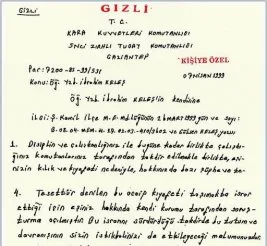 Gizli
GİZLİ
T.C.
KARA KUVVETLERİ KOMUTANLIĞI
5NCİ ZIRHLI TUGAY KOMUTANLIĞI
GAZİANTEP
KİŞİYE ÖZEL
Per: 7200-
07 NİSAN 1999
Konu: Öğ. Yzb. İbrahim KELEŞ
Öğ. Yzb. İbrahim KELEŞ'in kendisine
İlgi: Ş. Kamil İlçe M.E. Müdürlüğünün 2 MART 1999 gün ve sayı:
1. Disiplin ve çalışkanlığınız ile bugüne kadar birlikte çalıştı-
ğınız komutanlarınız tarafından takdir edilmekle birlikte, eşi-
nizin kılık ve kıyafeti nedeniyle, hakkında da bazı şüphe ve te-
4. Tesettür denilen bu acaip kıyafeti taşımakta ısrar
ettiği için eşiniz hakkında kendi kurumu tarafından soruş-
turma açılmıştır. Bu ısrarını sürdürdüğü takdirde bu tutum ve
davranışının sizin istikbalinizi de etkileyeceği